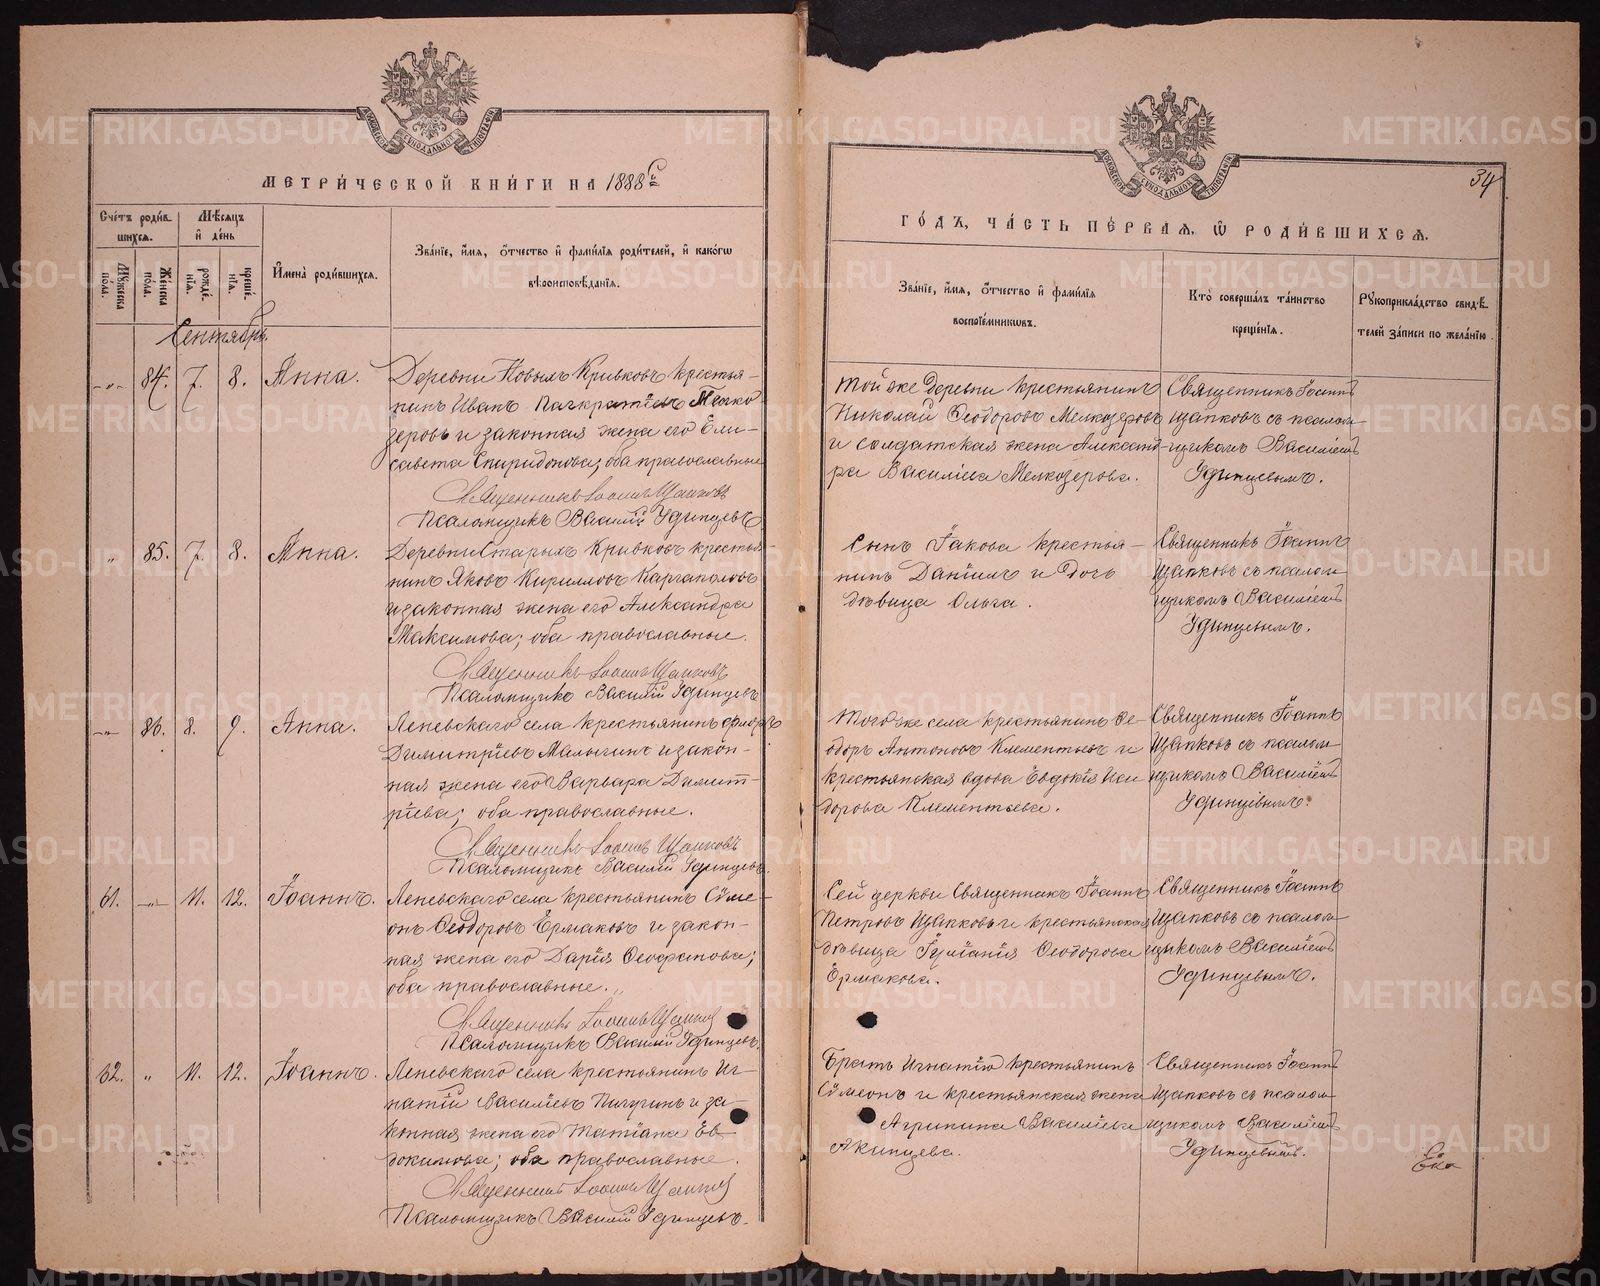 МОСКОВСКОЙ СѴНОДАЛЬНОЙ ТИПОГРАФІИ
МЕТРИ́ЧЕСКОЙ КНИ́ГИ НА 1888й
Сче́тъ роди́в
шихся.
Мѣ́сяцъ
и҆ де́нь
Мꙋ́жеска
пола.
Же́нска
по́ла.
рожде́
нїѧ.
креще́
нїѧ.
И҆мена̀ роди́вшихсѧ.
Зва́нїе, и҆́мѧ, ѻ҆́тчество и҆ фами́лїѧ роди́телей, и҆ како́гѡ
вѣроисповѣ́данїѧ.
Сентябрь.
-"- 84. 7. 8. Анна.
Деревни Новыхъ Кривковъ крестья-
нинъ Иванъ Панкратіевъ Мелко-
зеровъ и законная жена его Ели-
савета Спиридонова; оба православные
Священникъ Іоаннъ Щапковъ
Псаломщикъ Василій Удинцевъ
" 85. 7. 8. Анна.
Деревни Старыхъ Кривковъ крестья-
нинъ Яковъ Кирилловъ Каргаполовъ
и законная жена его Александра
Максимова; оба православные.
Священникъ Іоаннъ Щапковъ
Псаломщикъ Василій Удинцевъ
-"- 86. 8. 9. Анна.
Леневскаго села крестьянинъ Флоръ
Димитріевъ Малыгинъ и закон-
ная жена его Варвара Димит-
ріева; оба православные.
Священникъ Іоаннъ Щапковъ
Псаломщикъ Василій Удинцевъ
61. -"- 11. 12. Іоаннъ.
Леневскаго села крестьянинъ Сѵме-
онъ Ѳеодоровъ Ермаковъ и закон-
ная жена его Дарія Ѳеофанова;
оба православные.
Священникъ Іоаннъ Щапковъ
Псаломщикъ Василій Удинцевъ.
62. " 11. 12. Іоаннъ.
Леневскаго села крестьянинъ Иг-
натій Василіевъ Пичугинъ и за-
конная жена его Татіана Ев-
докимова; оба православные.
Священникъ Іоаннъ Щапковъ
Псаломщикъ Василій Удинцевъ.
МОСКОВСКОЙ СѴНОДАЛЬНОЙ ТИПОГРАФІИ
34
ГО́ДЪ, ЧА́СТЬ ПЕ́РВАѦ, Ѡ҆ РОДИ́ВШИХСѦ.
Зва́нїе, и҆́мѧ, ѻ҆́тчество и҆ фами́лїѧ
воспрїе́мникѡвъ.
Кто̀ соверша́лъ та́инство
креще́нїѧ.
Рꙋкоприкла́дство свидѣ́
телей за́писи по жела́нїю.
Той же деревни крестьянинъ
Николай Ѳеодоровъ Мелкозеровъ
и солдатская жена Александ-
ра Василіева Мелкозерова.
Священникъ Іоаннъ
Щапковъ съ псалом-
щикомъ Василіемъ
Удинцевымъ.
Сынъ Іакова крестья-
нинъ Даніилъ и дочь
дѣвица Ольга.
Священникъ Іоаннъ
Щапковъ съ псалом-
щикомъ Василіемъ
Удинцевымъ.
Того же села крестьянинъ Ѳе-
одоръ Антоновъ Клементьевъ и
крестьянская вдова Евдокія Иси-
дорова Клементьева.
Священникъ Іоаннъ
Щапковъ съ псалом-
щикомъ Василіемъ
Удинцевымъ.
Сей церкви Священникъ Іоаннъ
Петровъ Щапковъ и крестьянская
дѣвица Іуліанія Ѳеодорова
Ермакова.
Священникъ Іоаннъ
Щапковъ съ псалом-
щикомъ Василіемъ
Удинцевымъ.
Братъ Игнатію крестьянинъ
Сѵмеонъ и крестьянская жена
Агрипина Василіева
Акинцева.
Священникъ Іоаннъ
Щапковъ съ псалом-
щикомъ Василіемъ
Удинцевымъ.
METRIKI.GASO-URAL.RU